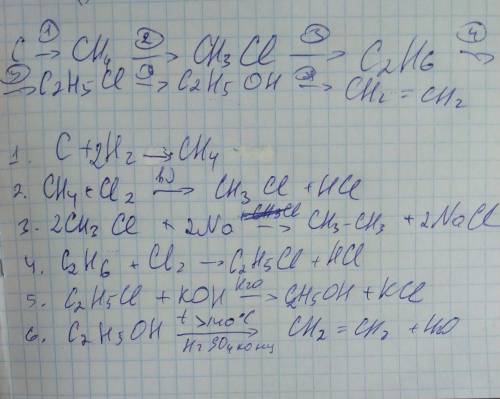 C →① CH₄ →② CH₃Cl →③ C₂H₆ →④
→⑤ C₂H₅Cl → C₂H₅OH → CH₂ = CH₂
1. C + 2H₂ → CH₄
2. CH₄ + Cl₂ →hν CH₃Cl + HCl
3. 2CH₃Cl + 2Na → CH₃-CH₃ + 2NaCl
4. C₂H₆ + Cl₂ → C₂H₅Cl + HCl
5. C₂H₅Cl + KOH →H₂O C₂H₅OH + KCl
6. C₂H₅OH →t >140°C H₂SO₄ конц CH₂ = CH₂ + H₂O